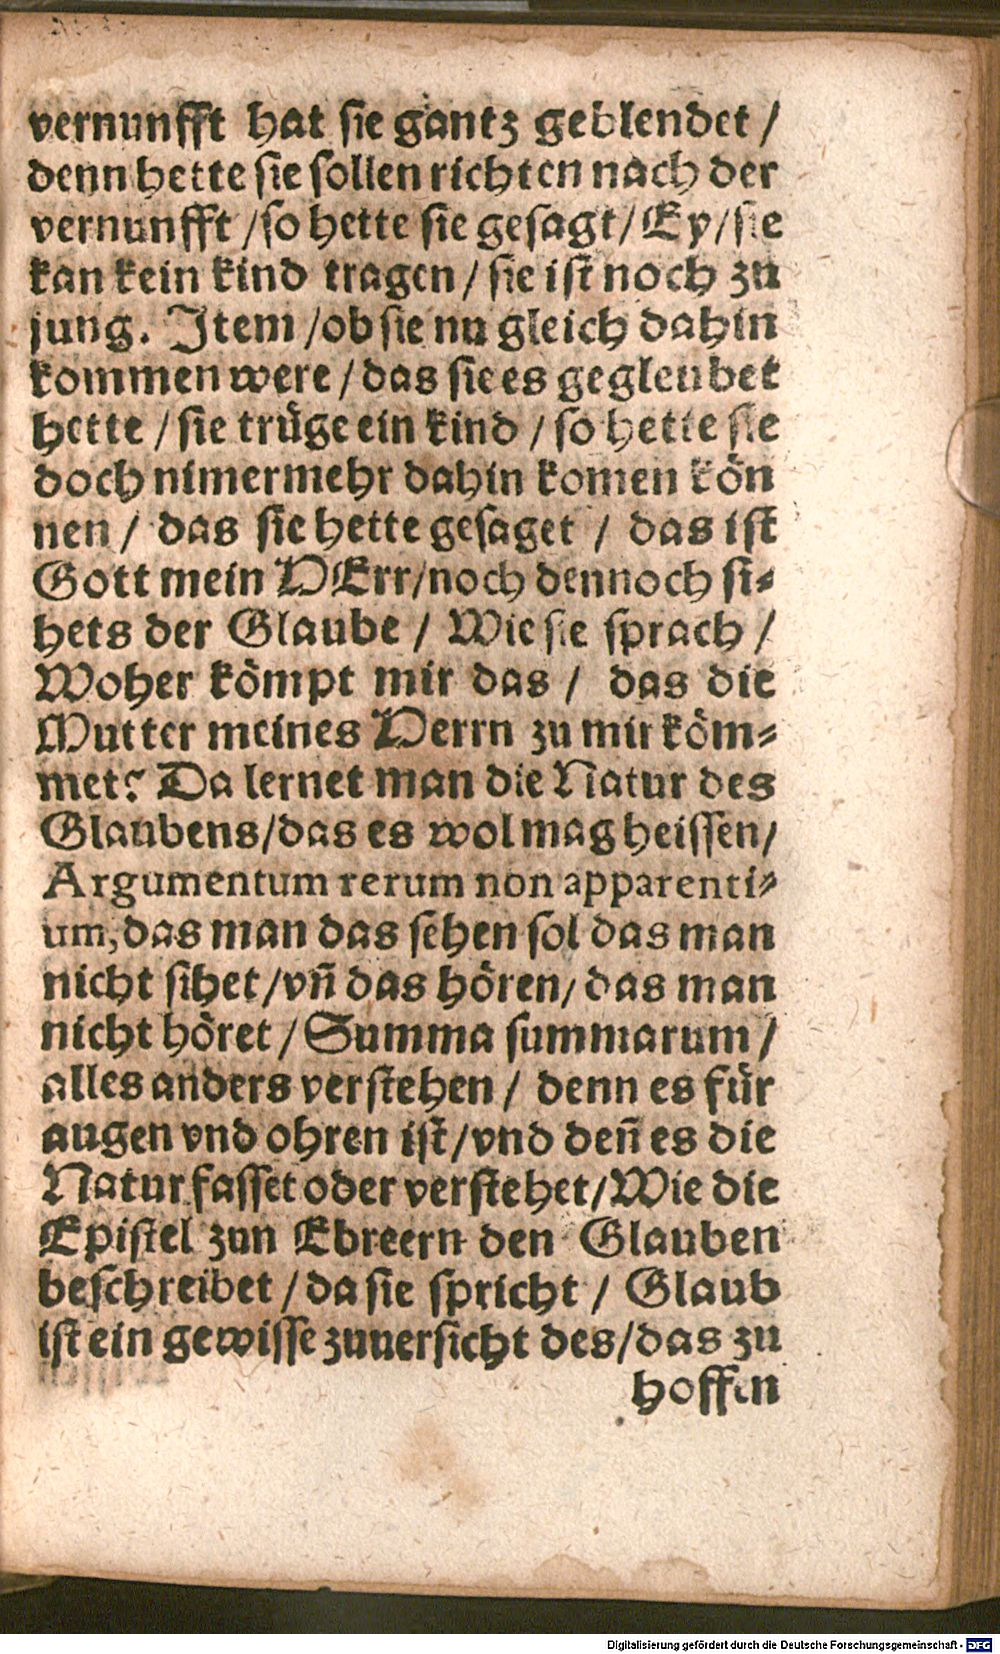 vernunfft hat sie gantz geblendet /
denn hette sie sollen richten nach der
vernunfft / so hette sie gesagt / Ey / sie
kan kein kind tragen / sie ist noch zu
jung. Item / ob sie nu gleich dahin
kommen were / das sie es gegleubet
hette / sie trüge ein kind / so hette sie
doch nimermehr dahin komen kön
nen / das sie hette gesaget / das ist
Gott mein HErr / noch dennoch si⸗
hets der Glaube / Wie sie sprach /
Woher kömpt mir das / das die
Mutter meines Herrn zu mir köm⸗
met? Da lernet man die Natur des
Glaubens / das es wol mag heissen /
Argumentum rerum non apparenti⸗
um, das man das sehen sol das man
nicht sihet / vñ das hören / das man
nicht höret / Summa summarum /
alles anders verstehen / denn es für
augen vnd ohren ist / vnd deñ es die
Natur fasset oder verstehet / Wie die
Epistel zun Ebreern den Glauben
beschreibet / da sie spricht / Glaub
ist ein gewisse zuuersicht des / das zu
hoffen
Digitalisierung gefördert durch die Deutsche Forschungsgemeinschaft - DFG